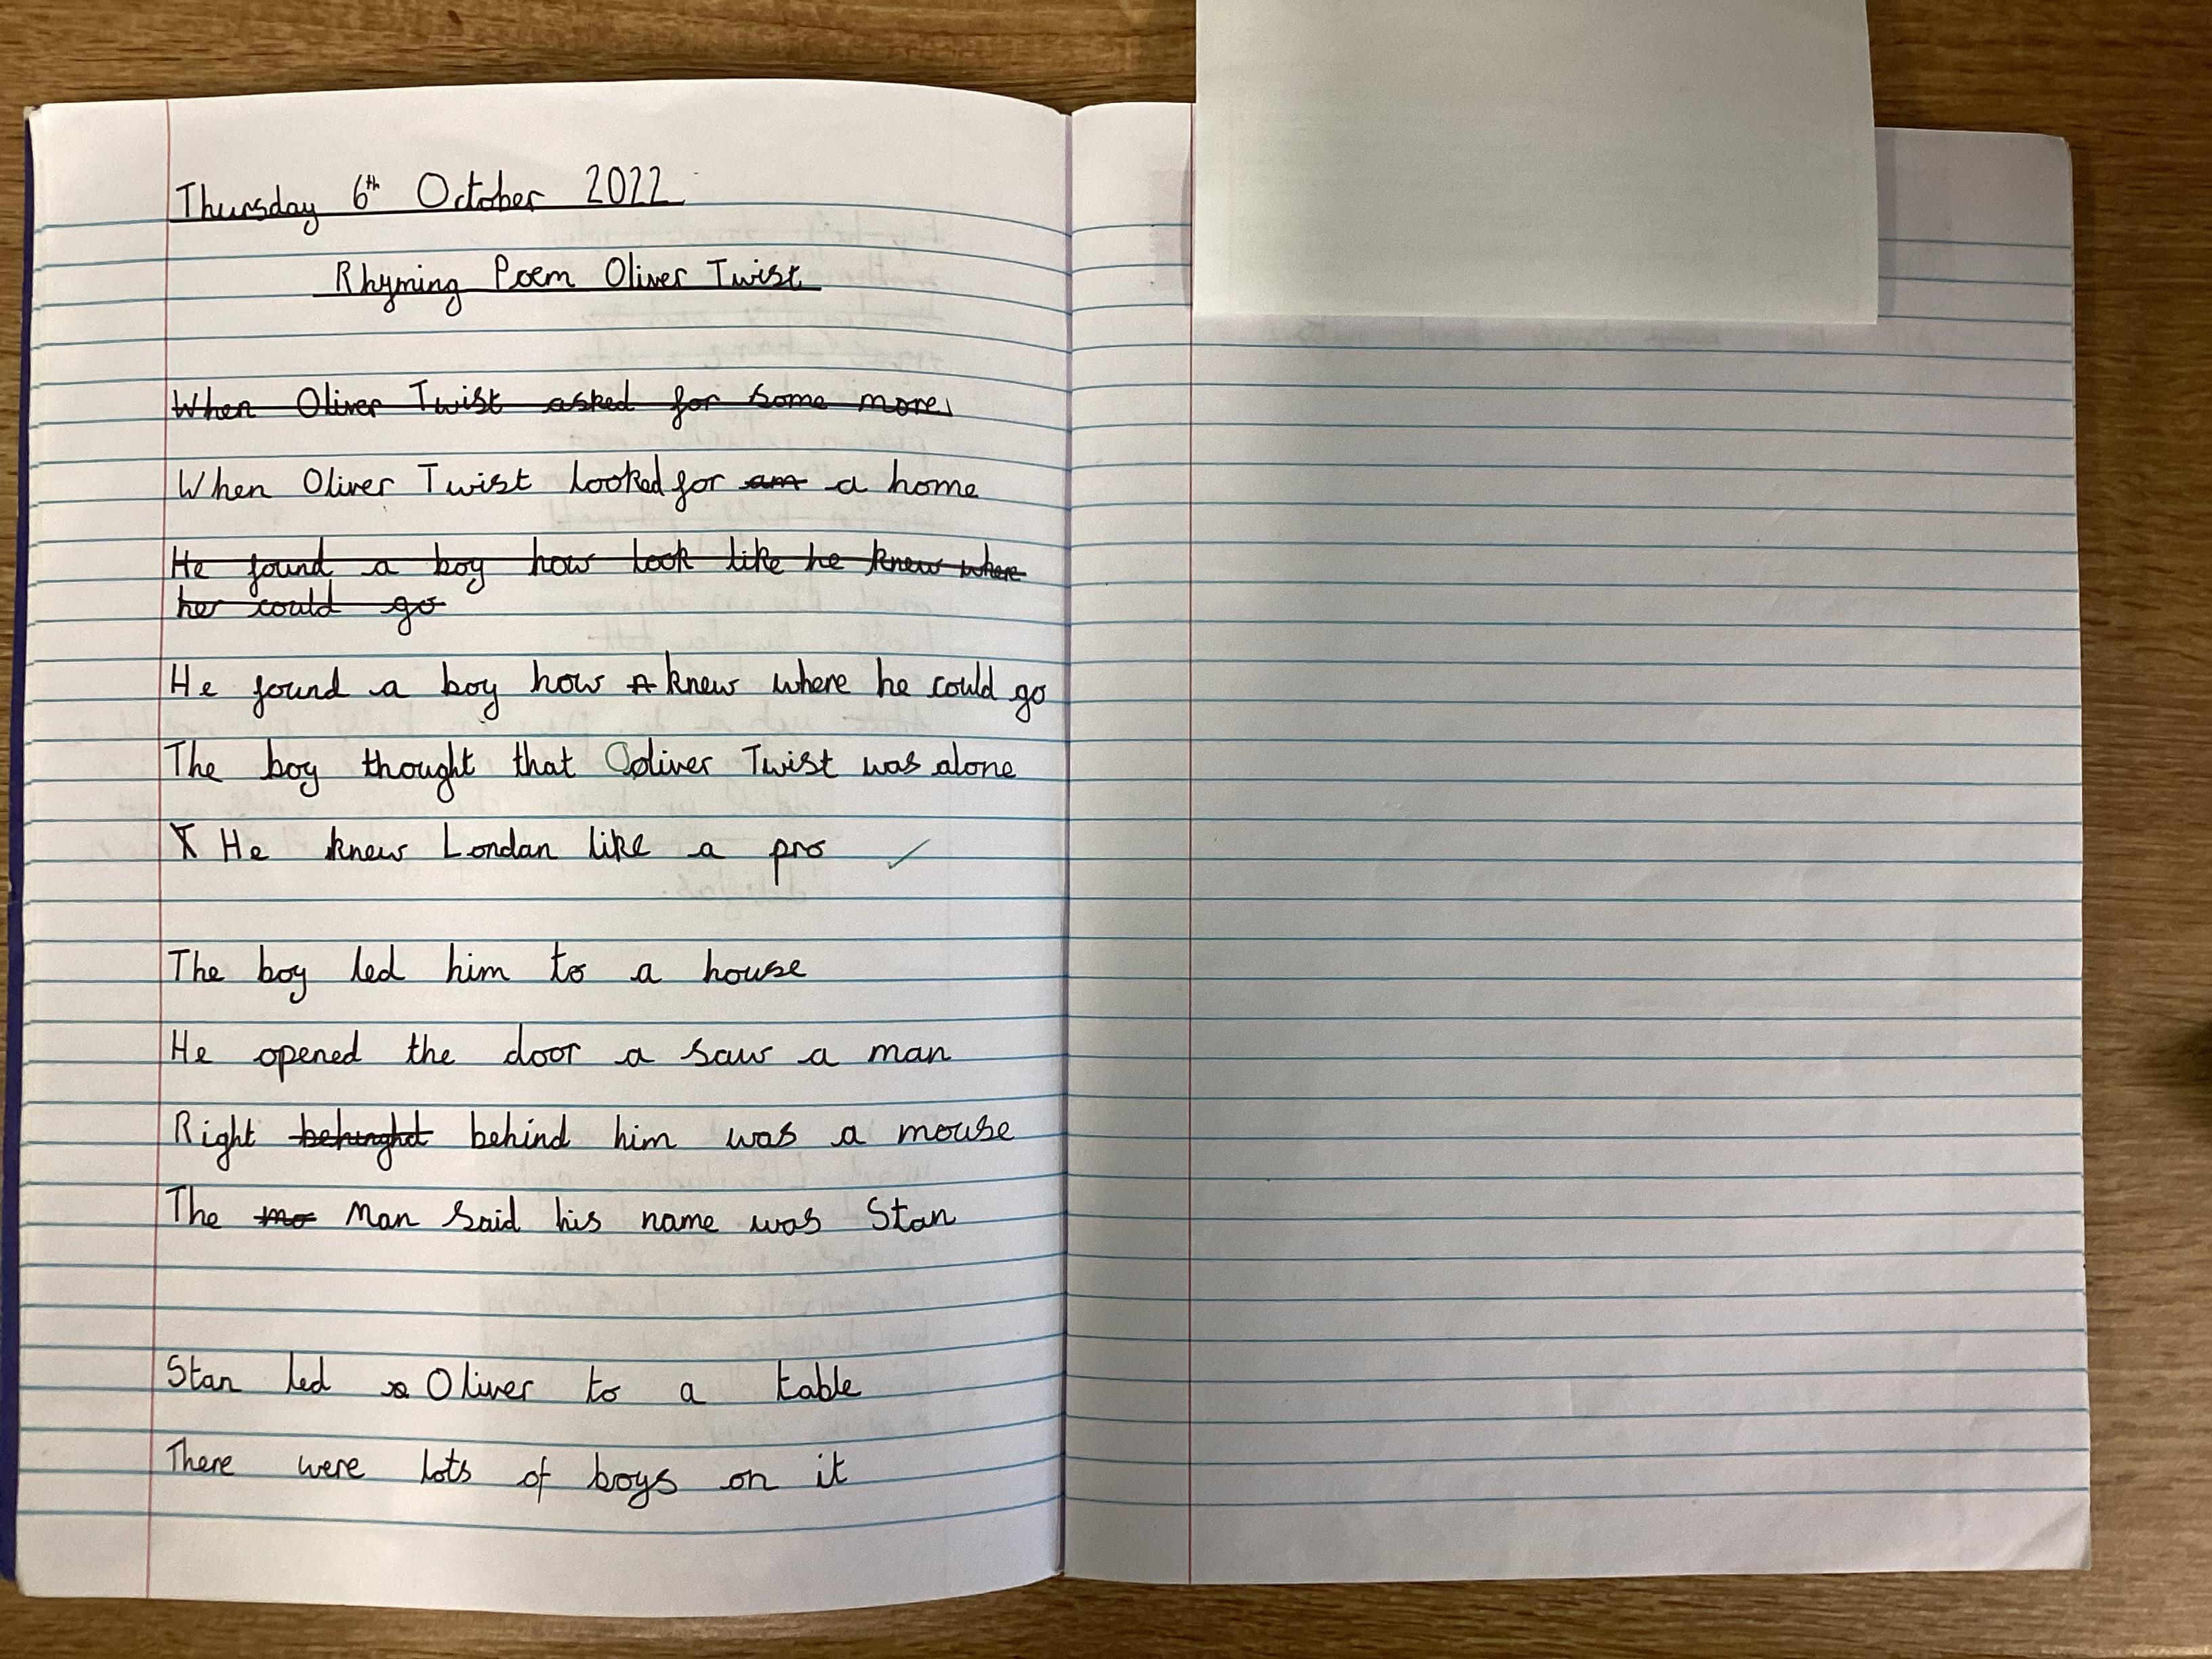 Thursday 6th October 2022
Rhyming Poem Oliver Twist
When Oliver Twist asked for some more,
When Oliver Twist looked for am a home
He found a boy how look like he knew where
her could go
He found a boy how knew where he could go
The boy thought that Ooliver Twist was alone
He knew Londan like a pro
The boy led him to a house
He opened the door a saw a man
Right behinght behind him was a mouse
The mo Man said his name was Stan
Stan led Oliver to a table
There were lots of boys on it